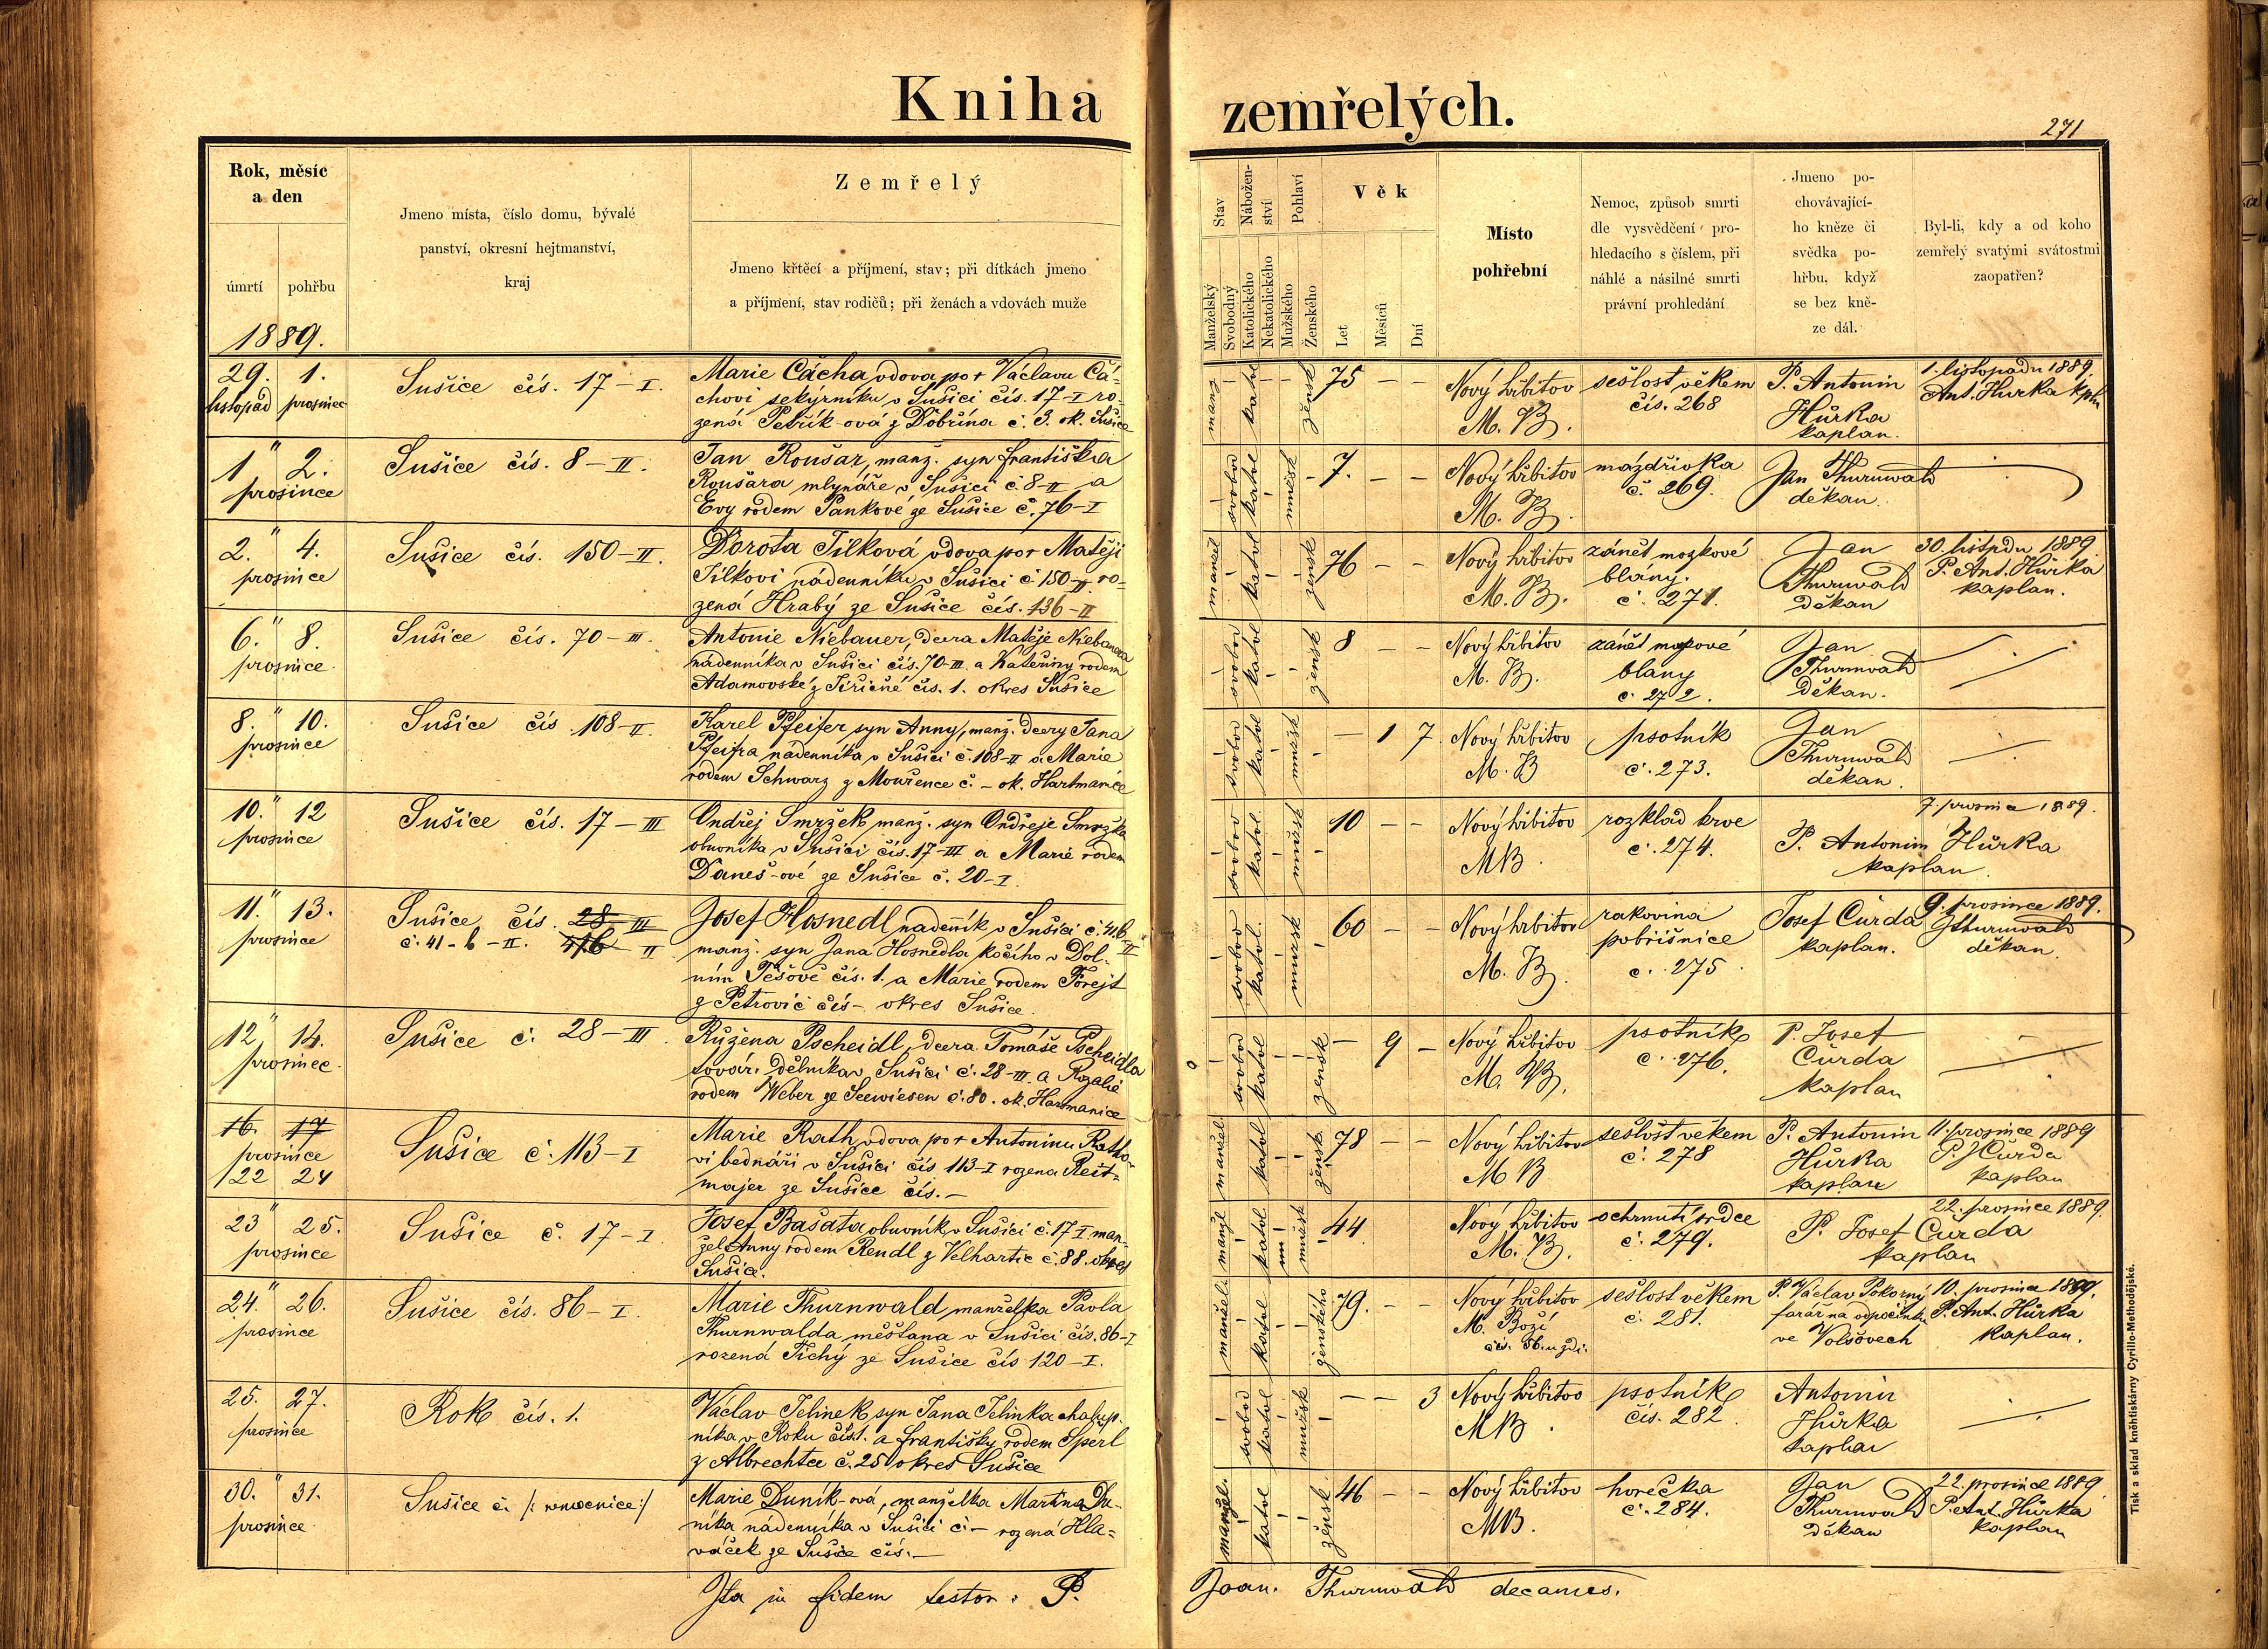 Kniha zemřelých.
271
Rok, měsíc
a den
úmrtí
pohřbu
1889.
Jmeno místa, číslo domu, bývalé
panství, okresní hejtmanství,
kraj
Zemřelý
Jmeno křtěcí a příjmení, stav; při dítkách jmeno
a příjmení, stav rodičů; při ženách a vdovách muže
Stav
Manželský
Svobodný
Nábožen-
ství
Katolického
Nekatolického
Pohlaví
Mužského
Ženského
Věk
Let
Měsíců
Dní
Místo
pohřební
Nemoc, způsob smrti
dle vysvědčení pro-
hledacího s číslem, při
náhlé a násilné smrti
právní prohledání
Jmeno po-
chovávající-
ho kněze či
svědka po-
hřbu, když
se bez kně-
ze dál.
Byl-li, kdy a od koho
zemřelý svatými svátostmi
zaopatřen?
29. 1.
listopad prosinec
Sušice čís. 17–I.
Marie Čácha vdova po + Václavu Čá-
chovi sekýrníku v Sušici čís. 17–I ro-
zená Petřík-ová z Dobřína č. 3. ok. Sušice
manž
katol
žensk
75 – –
Nový hřbitov
M. B.
sešlost věkem
čís. 268
P. Antonin
Hůrka
kaplan.
1. listopadu 1889.
Ant. Hurka kpln
1 " 2.
prosince
Sušice čís. 8–II.
Jan Roušar, manž. syn Františka
Roušara mlynáře v Sušici č. 8–II a
Evy rodem Pankové ze Sušice č. 76–I
svobod
katol
mužsk
7. – –
Nový hřbitov
M. B.
mázdřivka
č. 269.
Jan Thurnwald
děkan
2. " 4.
prosince
Sušice čís. 150–II.
Dorota Jílková vdova po + Matěji
Jílkovi nádenníku v Sušici č. 150–II. ro-
zená Hrabý ze Sušice čís. 136–II
manžel
katol
žensk
76 – –
Nový hřbitov
M. B.
zánět mozkové
blány.
č. 271.
Jan
Thurnwald
děkan
30. listpdu 1889.
P. Ant. Hůrka
kaplan.
6. " 8.
prosince
Sušice čís. 70–III.
Antonie Niebauer, dcera Matěje Niebauera
nádenníka v Sušici čís. 70–III. a Kateřiny rodem
Adamovské z Jiřičné čís. 1. okres Sušice
svobod
katol
žensk
8 – –
Nový hřbitov
M. B.
zánět mozkové
blány
č. 272.
Jan
Thurnwald
děkan.
8. " 10.
prosince
Sušice čís. 108–II.
Karel Pfeifer syn Anny, manž. dcery Jana
Pfeifra nádenníka v Sušici č. 108–II a Marie
rodem Schwarz z Mouřence č. – ok. Hartmanice
svobod
katol
mužsk
– 1 7
Nový hřbitov
M. B
psotník
č. 273.
Jan
Thurnwald
děkan.
10. " 12
prosince
Sušice čís. 17–III
Ondřej Smržek manž. syn Ondřeje Smržka
obuvníka v Sušici čís. 17–III a Marie rodem
Daneš-ové ze Sušice č. 20–I.
svobod
katol.
mužsk
10 – –
Nový hřbitov
MB.
rozklad krve
č. 274.
P. Antonin Hůrka
kaplan.
7. prosince 1889.
11. " 13.
prosince
Sušice čís. 28 III
č. 41-b–II. 416 II
Josef Hosnedl nadenník v Sušici č. 416 II
manž. syn Jana Hosnedla kočího v Dol-
ním Těšově čís. 1. a Marie rodem Forejt
z Petrovic čís – okres Sušice.
svobod
katol.
mužsk
60 – –
Nový hrbitov
M. B.
rakovina
pobřišnice
č. 275.
Josef Čurda
kaplan.
9. prosince 1889.
JThurnwald
děkan.
12 " 14.
prosinec.
Sušice č. 28–III.
Růžena Pscheidl, dcera Tomáše Pscheidla
továr. dělníka v Sušici č. 28–III. a Rozalie
rodem Weber ze Seewiesen č. 80. ok. Hartmanice
svobod
katol
žensk
– 9 –
Nový hřbitov
M. B.
psotník
č. 276.
P. Josef
Čurda
kaplan
16. 17
prosince
22 24
Sušice č. 113–I
Marie Rath vdova po + Antoninu Ratho-
vi bednáři v Sušici čís 113–I rozena Reit-
majer ze Sušice čís. –
manžel.
katol
žensk.
78 – –
Nový hřbitov
M B
sešlost věkem
č. 278
P. Antonin
Hůrka
kaplan
11. prosince 1889
P. J Čurda
kaplan
23 " 25.
prosince
Sušice č. 17–I
Josef Bašata obuvník v Sušici č. 17–I man-
žel Anny rodem Rendl z Velhartic č. 88. okres
Sušice.
manžl
katol
mužsk
44
Nový hřbitov
M. B.
ochrnutí srdce
č. 279.
P. Josef Čurda
kaplan
22. prosince 1889.
24. " 26.
prosince
Sušice čís. 86–I.
Marie Thurnwald manželka Pavla
Thurnwalda měšťana v Sušici čís. 86–I
rozená Tichý ze Sušice čís 120–I.
manžel
katol
ženského
79. – –
Nový hřbitov
M. Boží
čís. 86. u zdi.
sešlost věkem
č. 281.
P. Václav Pokorný
farář na odpočinku
ve Volšovech
10. prosince 1889.
P. Ant. Hůrka
kaplan.
25. " 27.
prosince
Rok čís. 1.
Václav Jelinek syn Jana Jelinka chalup-
níka v Roku čís. 1. a Františky rodem Sperl
z Albrechtce č. 25 okres Sušice
svobod
katol
mužsk
– – 3
Nový hřbitov
MB.
psotník
čís. 282.
Antonin
Hůrka
kaplan
30. " 31.
prosince
Sušice č. /: nemocnice :/
Marie Duník-ová, manželka Martina Du-
níka nádenníka v Sušici č. – rozená Hla-
váček ze Sušice čís. –
manžel.
katol
žensk
46 – –
Nový hřbitov
MB.
horečka
č. 284.
Jan
Thurnwald
děkan
22. prosince 1889.
P. Ant. Hůrka
kaplan
Ita in fidem testor: P. Joan. Thurnwald decanus.
Tisk a sklad kněhtiskárny Cyrillo-Methodějské.